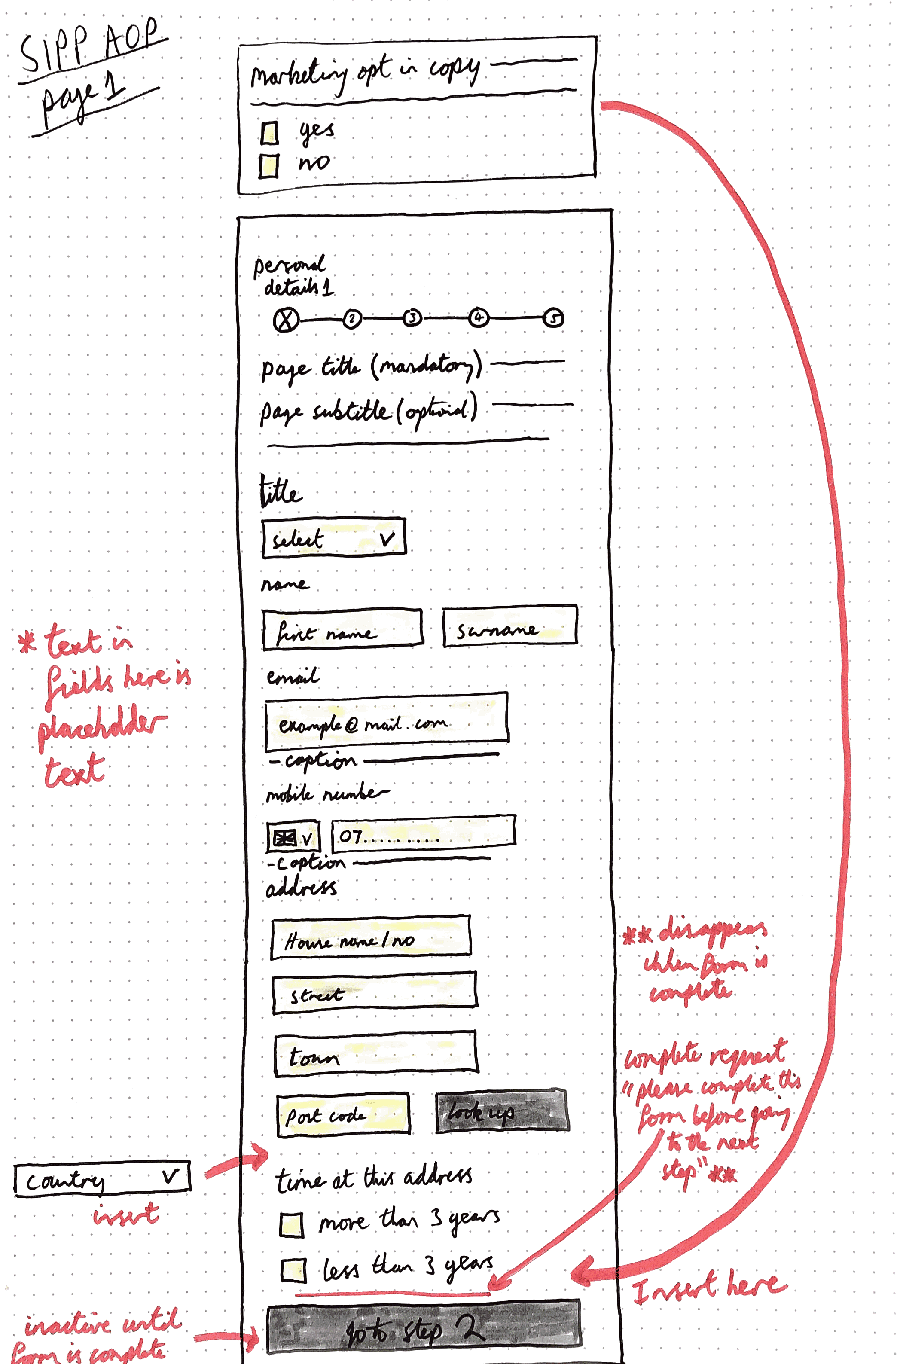 SIPP AOP
page 1
Marketing opt in copy
yes
no
personal
details 1
X 2 3 4 5
page title (mandatory)
page subtitle (optional)
title
select
name
first name
surname
* text in
fields here is
placeholder
text
email
example@mail.com
- caption
mobile number
07..........
- caption
address
House name/no
street
town
Post code
look up
** disappears
when form is
complete
complete request
"please complete this
form before going
to the next
step" **
country
insert
time at this address
more than 3 years
less than 3 years
Insert here
inactive until
form is complete
go to step 2